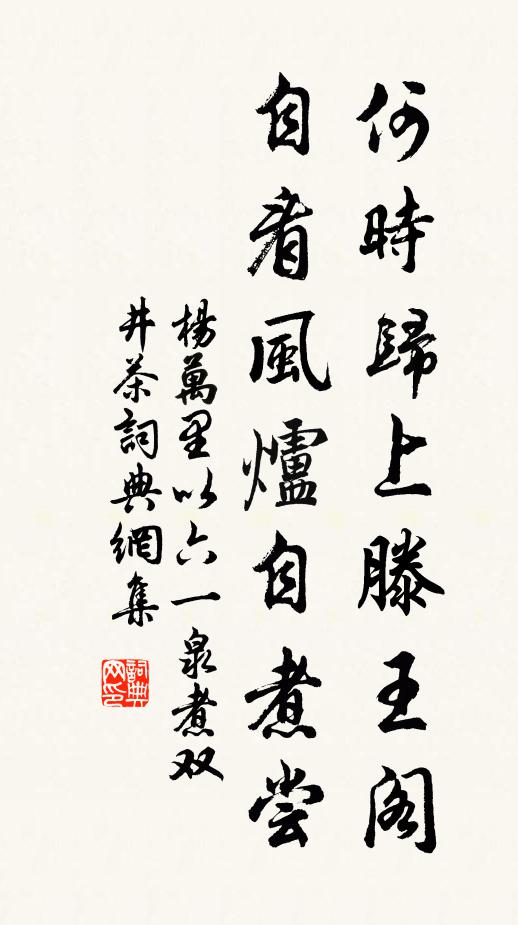 何時歸上滕王阁
自看風爐自煮尝
楊萬里以六一泉煮双
井茶詞典網集
詞典网印